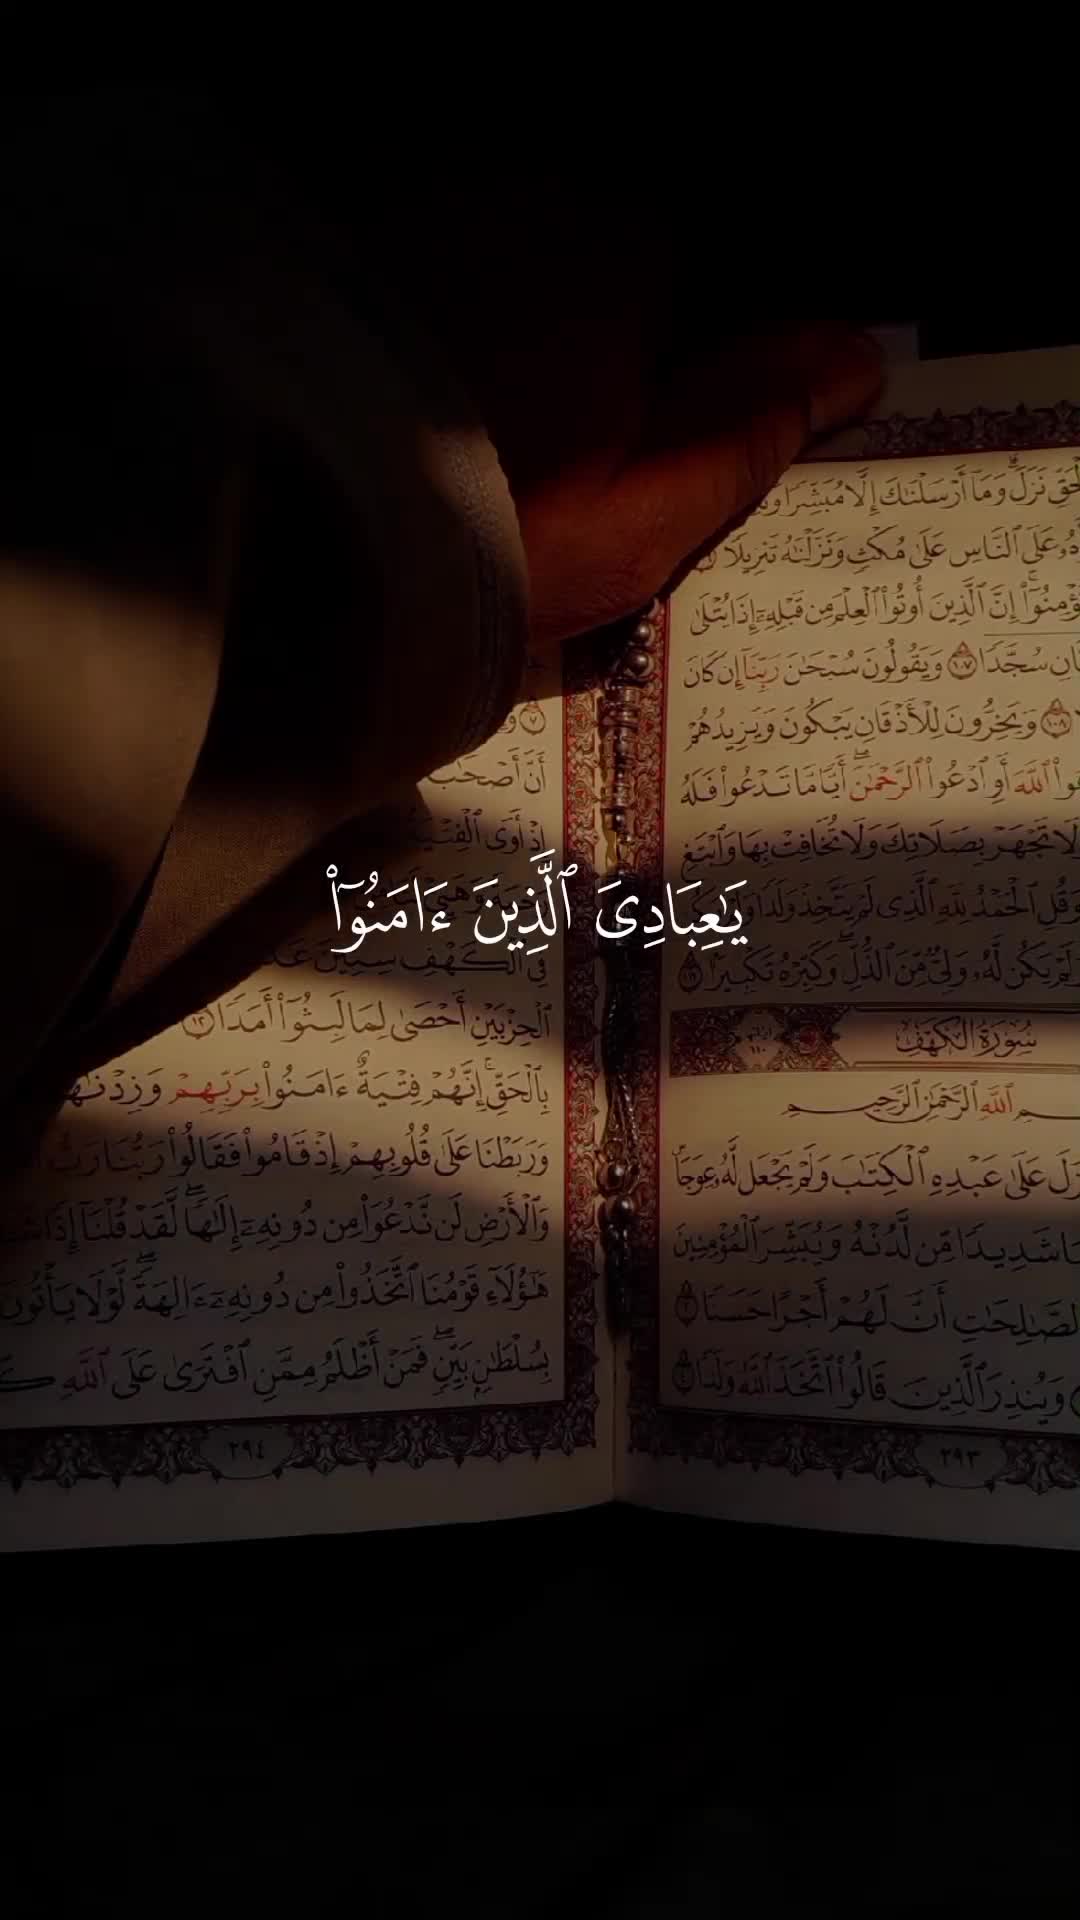 يَٰعِبَادِىَ ٱلَّذِينَ ءَامَنُوٓا۟
نَزَلَ وَمَآ أَرْسَلْنَٰكَ إِلَّا مُبَشِّرًا
عَلَى ٱلنَّاسِ عَلَىٰ مُكْثٍ وَنَزَّلْنَٰهُ تَنزِيلًا
إِنَّ ٱلَّذِينَ أُوتُوا۟ ٱلْعِلْمَ مِن قَبْلِهِۦٓ إِذَا يُتْلَىٰ
سُجَّدًا ١٠٧ وَيَقُولُونَ سُبْحَٰنَ رَبِّنَآ إِن كَانَ
١٠٨ وَيَخِرُّونَ لِلْأَذْقَانِ يَبْكُونَ وَيَزِيدُهُمْ
ٱللَّهَ أَوِ ٱدْعُوا۟ ٱلرَّحْمَٰنَ أَيًّا مَّا تَدْعُوا۟ فَلَهُ
تَجْهَرْ بِصَلَاتِكَ وَلَا تُخَافِتْ بِهَا وَٱبْتَغِ
وَقُلِ ٱلْحَمْدُ لِلَّهِ ٱلَّذِى لَمْ يَتَّخِذْ وَلَدًا
يَكُن لَّهُۥ وَلِىٌّ مِّنَ ٱلذُّلِّ وَكَبِّرْهُ تَكْبِيرًۢا
سُورَةُ الكَهْفِ
ٱللَّهِ ٱلرَّحْمَٰنِ ٱلرَّحِيمِ
عَلَىٰ عَبْدِهِ ٱلْكِتَٰبَ وَلَمْ يَجْعَل لَّهُۥ عِوَجَا
شَدِيدًا مِّن لَّدُنْهُ وَيُبَشِّرَ ٱلْمُؤْمِنِينَ
ٱلصَّٰلِحَٰتِ أَنَّ لَهُمْ أَجْرًا حَسَنًا
وَيُنذِرَ ٱلَّذِينَ قَالُوا۟ ٱتَّخَذَ ٱللَّهُ وَلَدًا
٢٩٣
٧
أَنَّ أَصْحَٰبَ
إِذْ أَوَى ٱلْفِتْيَةُ
فِى ٱلْكَهْفِ سِنِينَ
ٱلْحِزْبَيْنِ أَحْصَىٰ لِمَا لَبِثُوٓا۟ أَمَدًا ١٢
بِٱلْحَقِّ إِنَّهُمْ فِتْيَةٌ ءَامَنُوا۟ بِرَبِّهِمْ وَزِدْنَٰهُمْ
وَرَبَطْنَا عَلَىٰ قُلُوبِهِمْ إِذْ قَامُوا۟ فَقَالُوا۟ رَبُّنَا رَبُّ
وَٱلْأَرْضِ لَن نَّدْعُوَا۟ مِن دُونِهِۦٓ إِلَٰهًا لَّقَدْ قُلْنَآ إِذًا
هَٰٓؤُلَآءِ قَوْمُنَا ٱتَّخَذُوا۟ مِن دُونِهِۦٓ ءَالِهَةً لَّوْلَا يَأْتُونَ
بِسُلْطَٰنٍۭ بَيِّنٍ فَمَنْ أَظْلَمُ مِمَّنِ ٱفْتَرَىٰ عَلَى ٱللَّهِ
٢٩٤